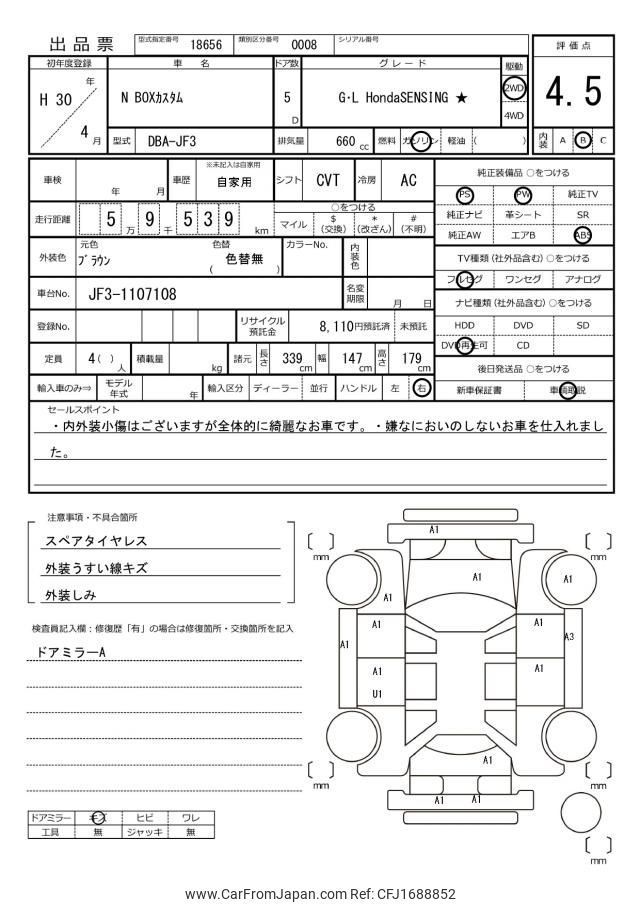 出品票
型式指定番号 18656 類別区分番号 0008 シリアル番号
評価点
4.5
内装 A B C
初年度登録 車名 ドア数 グレード 駆動
H 30 年 4 月
N BOXカスタム
5 D
G・L HondaSENSING ★
2WD
4WD
型式 DBA-JF3 排気量 660 cc 燃料 ガソリン 軽油 ( )
車検 年 月 車歴 ※未記入は自家用 自家用 シフト CVT 冷房 AC
走行距離 5 9 5 3 9 万 千 km
○をつける
マイル $ (交換) * (改ざん) # (不明)
外装色 元色 ブラウン 色替 ( 色替無 ) カラーNo. 内装色
車台No. JF3-1107108 名変期限 月 日
登録No. リサイクル預託金 8,110円預託済 未預託
定員 4( )人 積載量 kg 諸元 長さ 339 cm 幅 147 cm 高さ 179 cm
輸入車のみ⇒ モデル年式 年 輸入区分 ディーラー 並行 ハンドル 左 右
純正装備品 ○をつける
PS PW 純正TV
純正ナビ 革シート SR
純正AW エアB ABS
TV種類 (社外品含む) ○をつける
フルセグ ワンセグ アナログ
ナビ種類 (社外品含む) ○をつける
HDD DVD SD
DVD再生可 CD
後日発送品 ○をつける
新車保証書 車輌取説
セールスポイント
・内外装小傷はございますが全体的に綺麗なお車です。・嫌なにおいのしないお車を仕入れまし
た。
注意事項・不具合箇所
スペアタイヤレス
外装うすい線キズ
外装しみ
検査員記入欄：修復歴「有」の場合は修復箇所・交換箇所を記入
ドアミラーA
ドアミラー キズ ヒビ ワレ
工具 無 ジャッキ 無
A1
mm
mm
A1
A1
A1
A1
A1
A1
A3
A1
A1
U1
A1
mm
mm
A1 A1
mm
www.CarFromJapan.com Ref: CFJ1688852